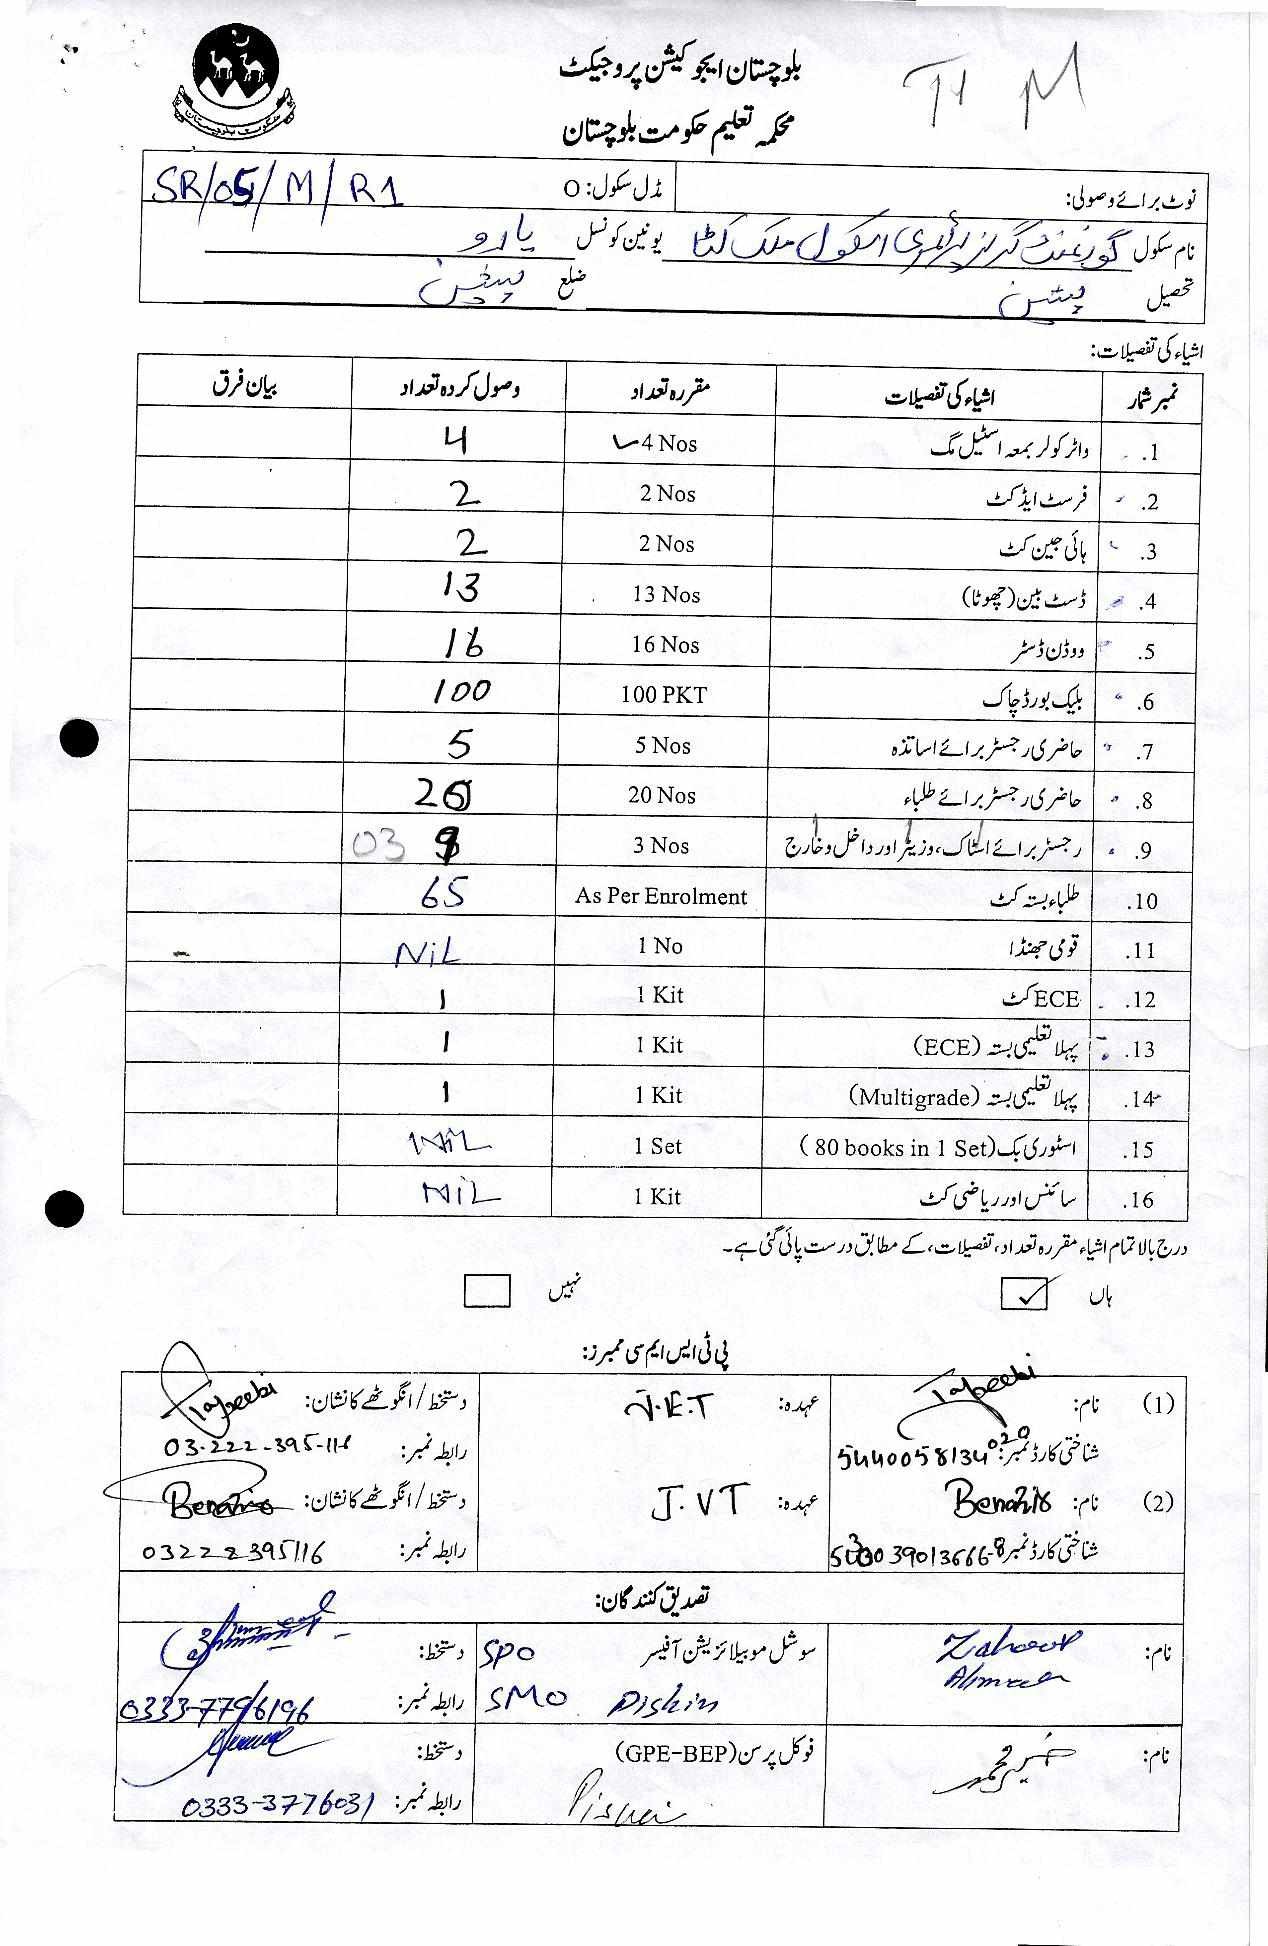 بلوچستان ایجوکیشن پروجیکٹ
محکمہ تعلیم حکومت بلوچستان
حکومت بلوچستان
نوٹ برائے وصولی: مڈل سکول: O SR/05/M/R1
نام سکول گورنمنٹ گرلز پرائمری اسکول ملک کٹا یونین کونسل یارو
تحصیل پشین ضلع پشین
اشیاء کی تفصیلات:
نمبر شمار اشیاء کی تفصیلات مقررہ تعداد وصول کردہ تعداد بیان فرق
1. واٹر کولر بمعہ اسٹیل مگ 4 Nos 4
2. فرسٹ ایڈ کٹ 2 Nos 2
3. ہائی جین کٹ 2 Nos 2
4. ڈسٹ بین (چھوٹا) 13 Nos 13
5. ووڈن ڈسٹر 16 Nos 16
6. بلیک بورڈ چاک 100 PKT 100
7. حاضری رجسٹر برائے اساتذہ 5 Nos 5
8. حاضری رجسٹر برائے طلباء 20 Nos 20
9. رجسٹر برائے اسٹاک، وزیٹر اور داخل و خارج 3 Nos 03
10. طلباء بستہ کٹ As Per Enrolment 65
11. قومی جھنڈا 1 No NiL
12. ECE کٹ 1 Kit 1
13. پہلا تعلیمی بستہ (ECE) 1 Kit 1
14. پہلا تعلیمی بستہ (Multigrade) 1 Kit 1
15. اسٹوری بک (80 books in 1 Set) 1 Set NiL
16. سائنس اور ریاضی کٹ 1 Kit NiL
درج بالا تمام اشیاء مقررہ تعداد، تفصیلات، کے مطابق درست پائی گئی ہے۔
ہاں ✓ نہیں
پی ٹی ایس ایم سی ممبرز:
(1) نام: Tajbeebi عہدہ: J.E.T دستخط / انگوٹھے کا نشان: Tajbeebi
شناختی کارڈ نمبر: رابطہ نمبر: 03-222-395-116
(2) نام: عہدہ: J.VT دستخط / انگوٹھے کا نشان:
شناختی کارڈ نمبر رابطہ نمبر: 03222395116
تصدیق کنندگان:
نام: Zahoor Ahmad سوشل موبیلائزیشن آفیسر SPO دستخط:
SMO Pishin رابطہ نمبر: 0333-7796196
نام: خیر محمد فوکل پرسن (GPE-BEP) دستخط:
Pishin رابطہ نمبر: 0333-3776031